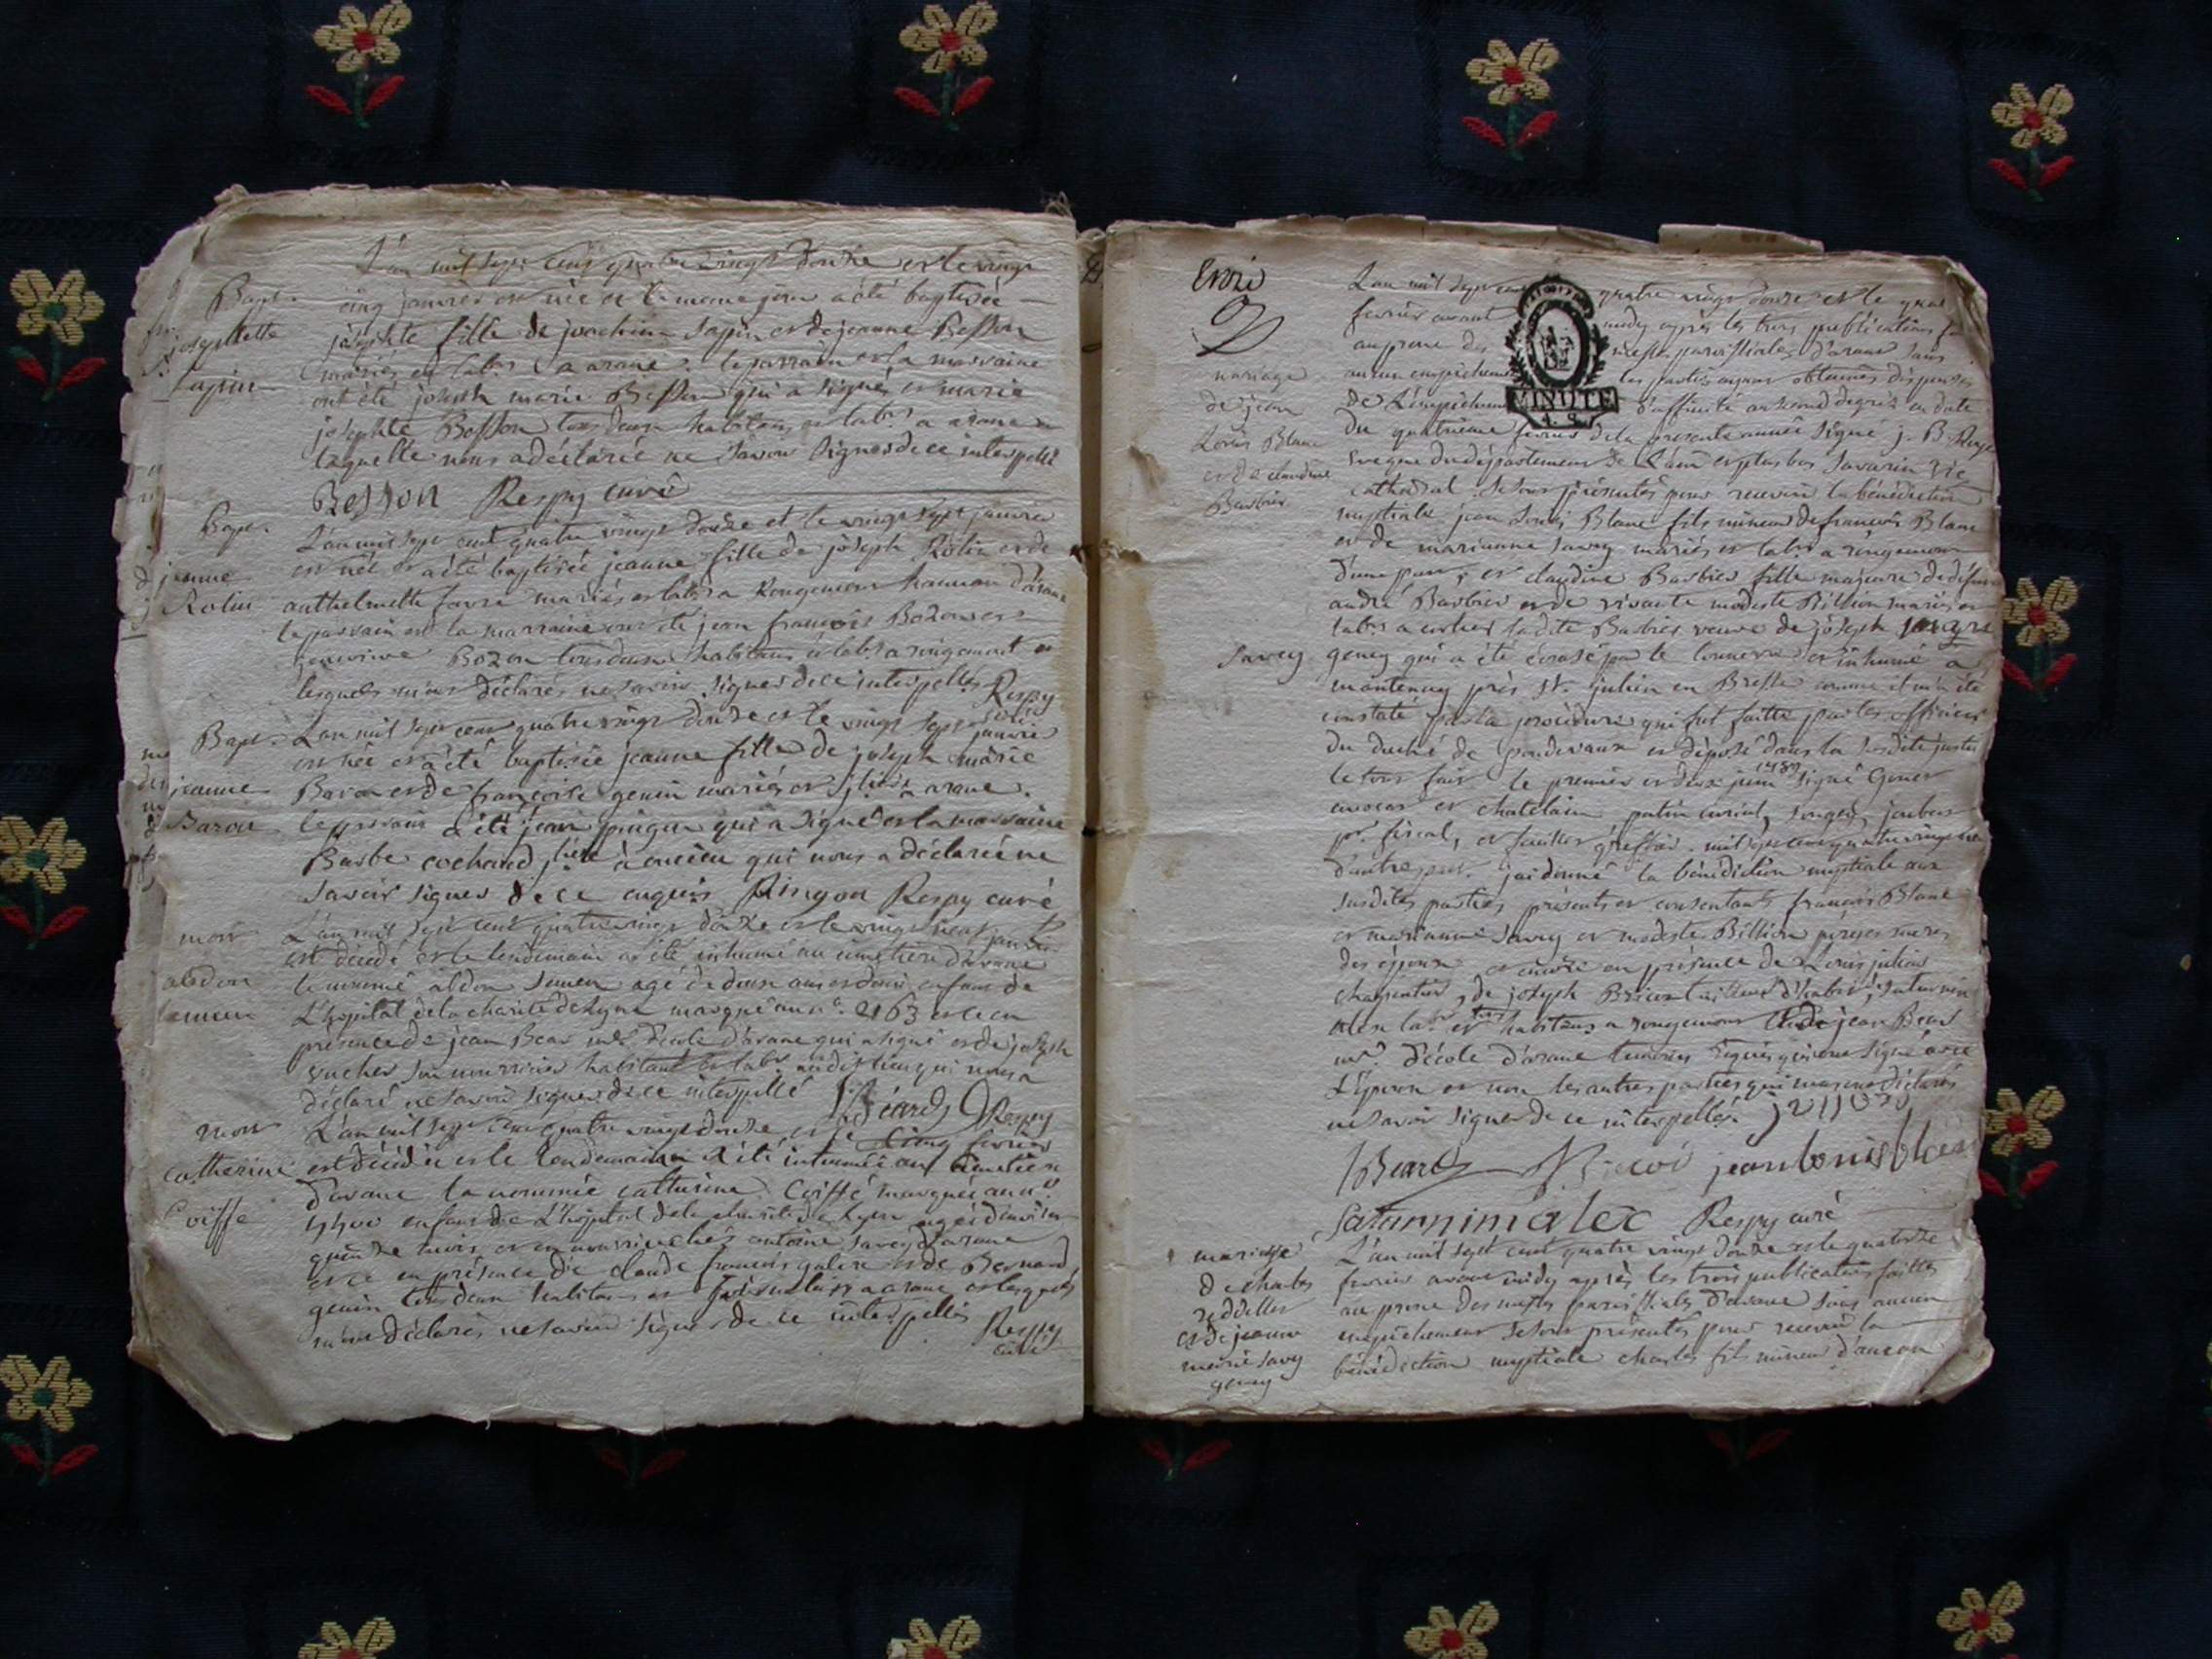 L'an mil sept cent quatre vingt douze et le vingt
Bapt.
cinq janvier est née et le meme jour a été baptisée
josephette
josephte fille de joachim Sapin et de jeanne Besson
Sapin
mariés et lab.rs a arane. le parrain et la marraine
ont été joseph marie Besson qui a signé et marie
josephte Besson tous deux habitans et lab.rs a arane
laquelle nous a déclaré ne savoir signer de ce interpellé
Besson Respy curé
Bapt.
L'an mil sept cent quatre vingt douze et le vingt sept janvier
jeanne
est née et a été baptisée jeanne fille de joseph Rolin et de
Rolin
anthelmette favre mariés et lab.rs a Rougemont hameau d'arane
le parrain et la marraine ont été jean françois Bozon et
Bozon tous deux habitans et lab.rs a rougemont
lesquels m'ont déclarés ne savoir signer de ce interpellés Respy
curé
Bapt.
L'an mil sept cent quatre vingt douze et le vingt sept janvier
est née et a été baptisée jeanne fille de joseph marie
jeanne
Baron et de françoise genin mariés et a arane.
Baron
le parrain a été jean pingon qui a signé et la marraine
Barbe cochand à qui nous a déclaré ne
savoir signer de ce enquis Pingon Respy curé
mort
L'an mil sept cent quatre vingt douze et le vingt neuf janvier
est décédé et le lendemain a été inhumé au cimetiere d'arane
abdon
le nommé abdon agé de douze ans et demi enfant de
L'hopital de la charité de Lyon marqué au n.o 2163 et ce en
présence de jean Bear m.e d'école d'arane qui a signé et de joseph
vucher son nourricier habitant et lab.r audit lieu qui nous a
déclaré ne savoir signer de ce interpellé Béard Respy
mort
L'an mil sept cent quatre vingt douze et le cinq fevrier
catherine
est décédée et le lendemain a été inhumée au cimetiere
Coiffé
d'arane la nommée catherine Coiffé marquée au n.o
enfant de L'hopital de la charité de Lyon agée d'environ
quinze mois et en nourrice chés antoine savey d'arane
et ce en présence de claude françois galere et de Bernard
genin tous deux habitans et a arane et lesquels
m'ont déclarés ne savoir signer de ce interpellés
Respy
curé
trois
L'an mil sept cent quatre vingt douze et le
fevrier avant midy après les trois publications
au prone des messes paroissiales d'arane sans
mariage
aucun empêchement les parties ayant obtenues dispenses
de jean
de L'empêchement d'affinité au second degré en date
MINUTE
4. S.
Louis Blanc
du quatrieme fevrier de la presente année signé j. B. Royer
et de claudine
eveque du département de L'ain et plus bas savarin vic
Barbier
cathedral. se sont présentés pour recevoir la bénédiction
nuptiale jean Louis Blanc fils mineur de françois Blanc
et de marianne savey mariés et lab.rs a rougemont
d'une part, et claudine Barbier fille majeure de défunt
andré Barbier et de vivante modeste Billion mariés et
lab.rs a ladite Barbier veuve de joseph
savey
geney qui a été écrasé par le tonnerre et inhumé a
montenay près St. julien en Bresse comme il m'a été
constaté par la procédure qui fut faitte par les officiers
du duché de pondevaux et déposé dans la susdite
le tout fait le premier et deux juin 1789 signé
avocat et chatelain,
pr. fiscal, et greffier. mil sept cent quatre vingt
d'autre part. j'ai donné la bénédiction nuptiale aux
susdites parties présents et consentants françois Blanc
et marianne savey et modeste Billion pères et mères
des époux et encore en présence de Louis julien
charpentier, de joseph Bricot tailleur d'habit, saturnin
alex lab.r et tous habitans a rougemont et de jean Bear
m.e d'école d'arane temoins requis qui ont signé avec
L'époux et non les autres parties qui m'ont déclarés
ne savoir signer de ce interpellés.
Beard Bricot jean louis blan
Saturnnin alex Respy curé
mariage
L'an mil sept cent quatre vingt douze et le quatorze
de charles
fevrier avant midy après les trois publications faittes
au prone des messes paroissiales d'arane sans aucun
et de jeanne
empêchement se sont présentés pour recevoir la
marie savey
bénédiction nuptiale charles fils mineur d'
geney